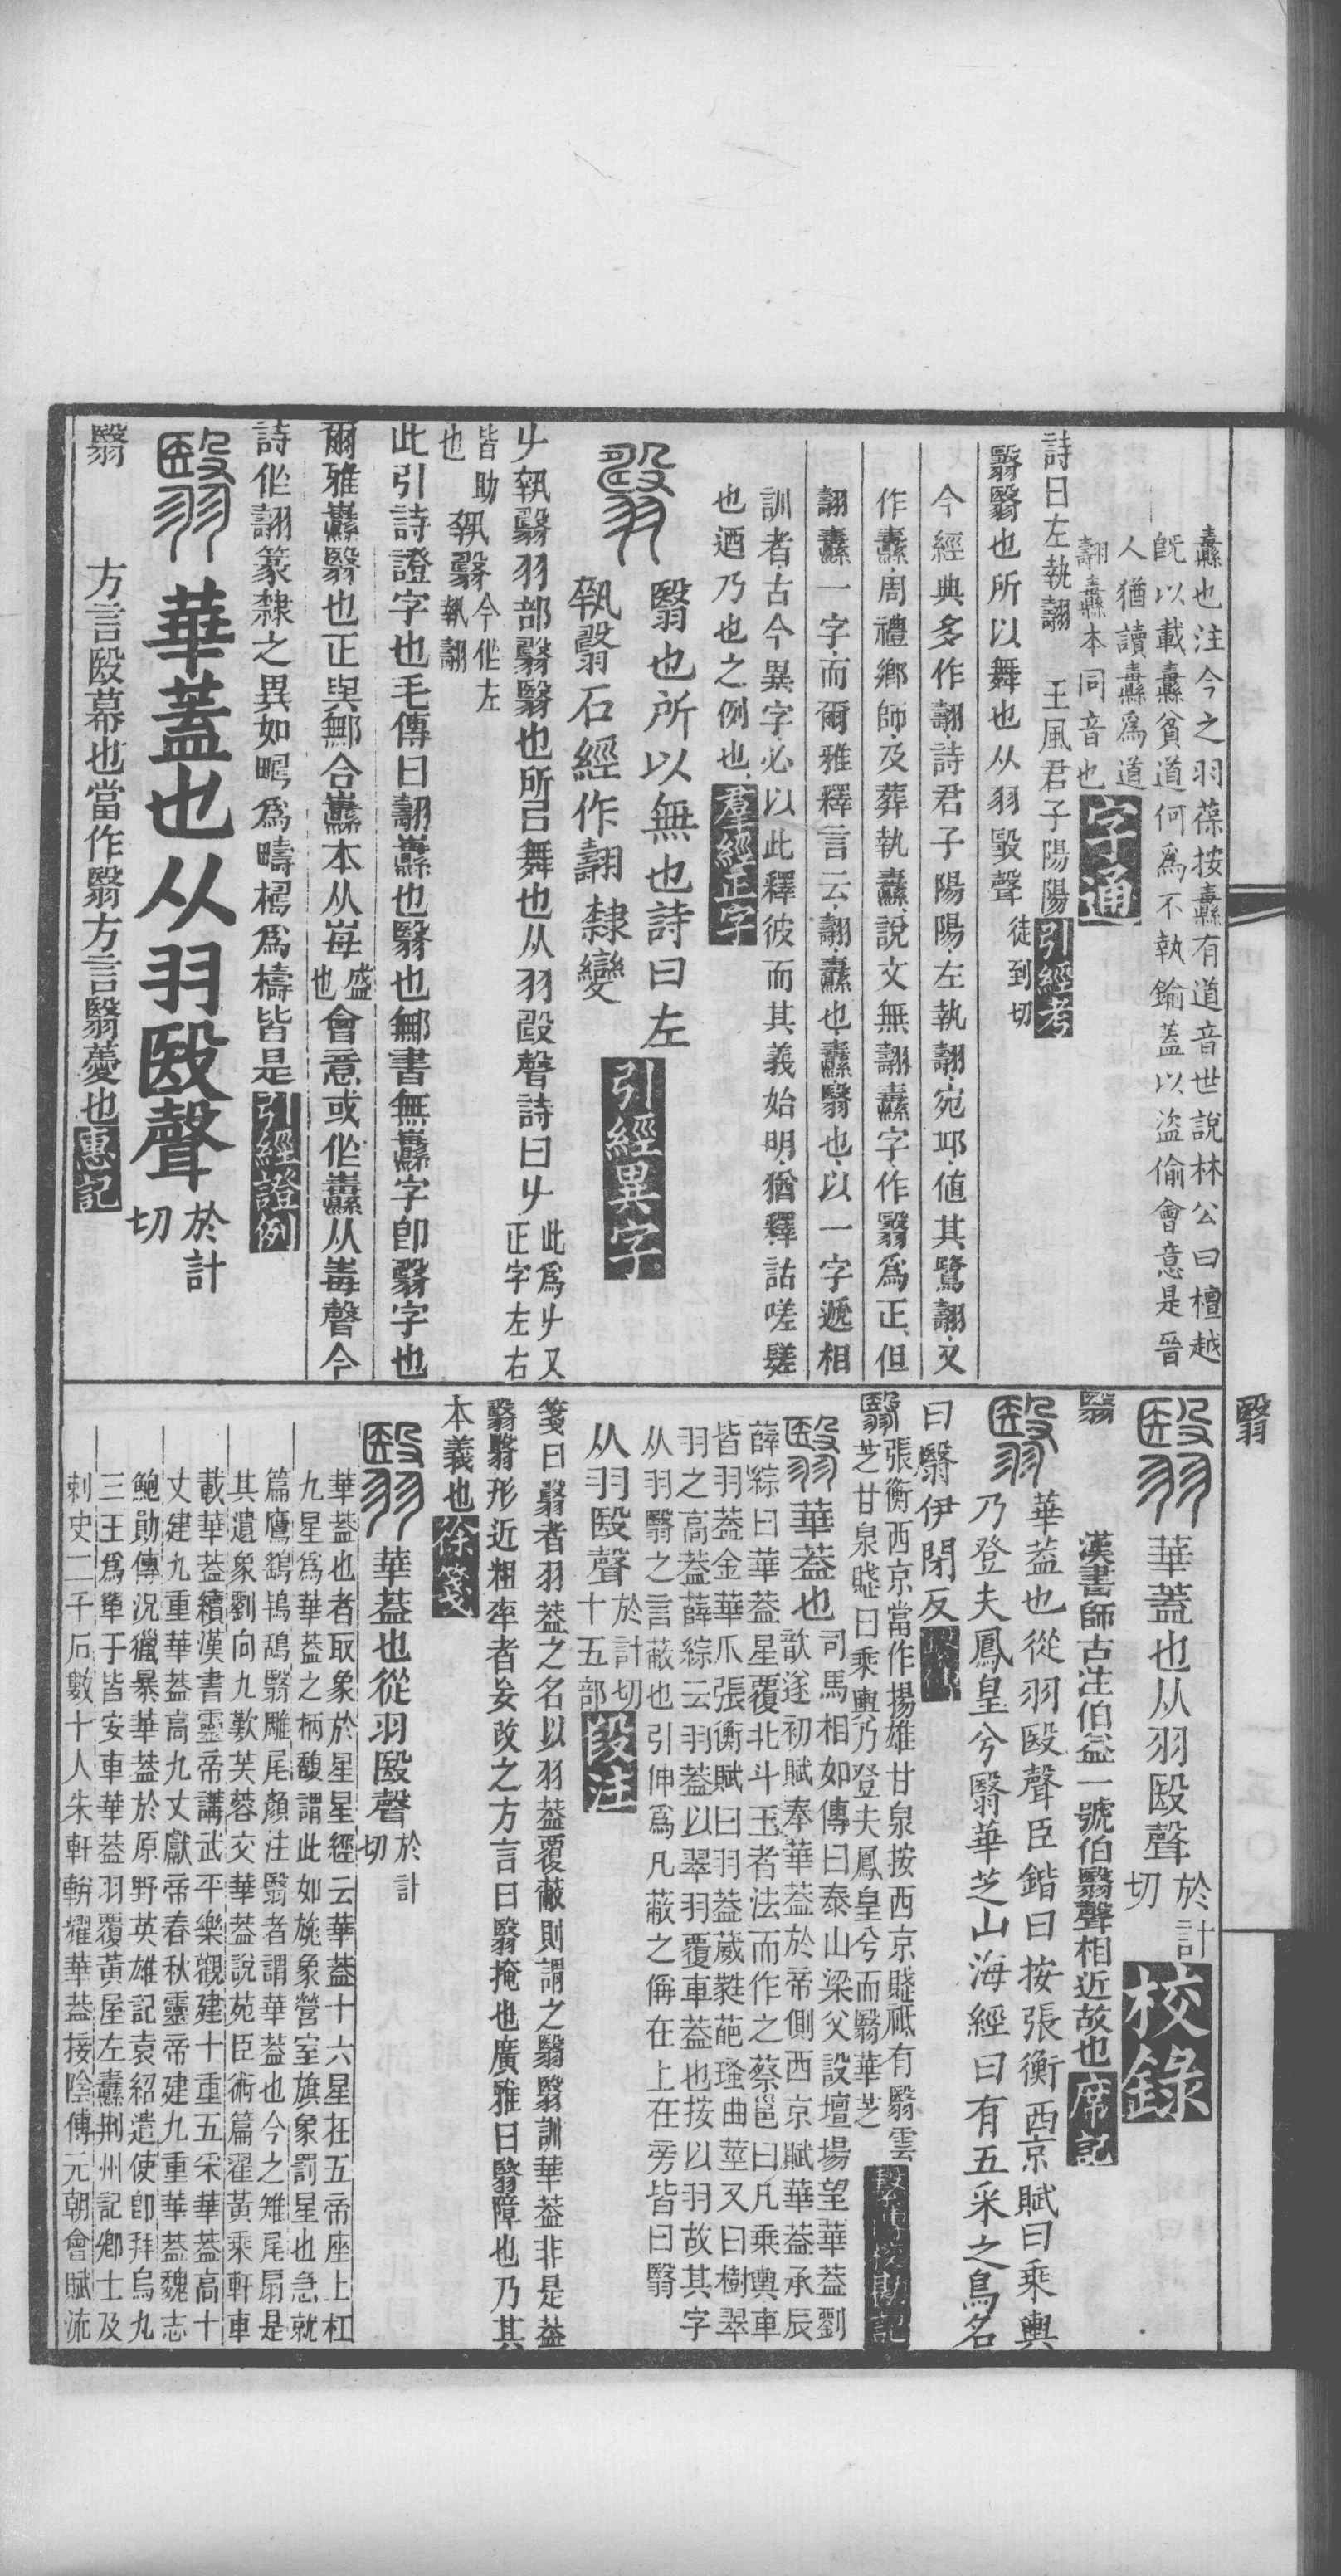 翳
纛也注今之羽葆按纛有道音世說林公曰檀越
旣以載纛貧道何爲不執鍮蓋以盜偷會意是晉
人猶讀纛爲道
翿纛本同音也字通
詩曰左執翿 王風君子陽陽引經考
翳翳也所以舞也从羽殹聲徒到切
今經典多作翿詩君子陽陽左執翿宛邱値其鷺翿文
作纛周禮鄉師及葬執纛說文無翿纛字作翳爲正但
翿纛一字而爾雅釋言云翿纛也纛翳也以一字遞相
訓者古今異字必以此釋彼而其義始明猶釋詁嗟㜘
也迺乃也之例也羣經正字
翳也所以舞也詩曰左
執翳石經作翿隸變引經異字
𠂇執翳羽部翳翳也所㠯舞也从羽殹聲詩曰𠂇此爲𠂇又
正字左右
皆助
也執翳今作左
執翿
此引詩證字也毛傳曰翿纛也翳也鄦書無纛字卽翳字也
爾雅纛翳也正與鄦合纛本从每盛
也會意或作纛从毒聲今
詩作翿篆隸之異如㽬爲疇檮爲檮皆是引經證例
翳華蓋也从羽殹聲於計
切
翳 方言殹幕也當作翳方言翳薆也惠記
翳華蓋也从羽殹聲於計
切校錄
翳 漢書師古注伯益一號伯翳聲相近故也席記
翳華蓋也從羽殹聲臣鍇曰按張衡西京賦曰乘輿
乃登夫鳳皇兮翳華芝山海經曰有五采之鳥名
曰翳伊閉反繫傳
翳張衡西京當作揚雄甘泉按西京賦祇有翳雲
芝甘泉賦曰乘輿乃登夫鳳皇兮而翳華芝繫傳校勘記
翳華葢也司馬相如傳曰泰山梁父設壇場望華葢劉
歆遂初賦奉華葢於帝側西京賦華葢承辰
薛綜曰華葢星覆北斗王者法而作之蔡邕曰凡乘輿車
皆羽葢金華爪張衡賦曰羽葢葳蕤葩瑵曲莖又曰樹翠
羽之高葢薛綜云羽葢以翠羽覆車葢也按以羽故其字
从羽翳之言蔽也引伸爲凡蔽之偁在上在旁皆曰翳
从羽殹聲於計切
十五部段注
箋曰翳者羽葢之名以羽葢覆蔽則謂之翳翳訓華葢非是葢
翳翳形近粗率者妄改之方言曰翳掩也廣雅曰翳障也乃其
本義也徐箋
翳華葢也從羽殹聲於計
切
華葢也者取象於星星經云華葢十六星在五帝座上杠
九星爲華葢之柄馥謂此如旄象營室旗象罰星也急就
篇鷹鷂鴇鴰翳雕尾顏注翳者謂華葢也今之雉尾扇是
其遺象劉向九歎芙蓉交華葢說苑臣術篇翟黃乘軒車
載華葢續漢書靈帝講武平樂觀建十重五采華葢高十
丈建九重華葢高九丈獻帝春秋靈帝建九重華葢魏志
鮑勛傳況獵暴華葢於原野英雄記袁紹遣使卽拜烏丸
三王爲單于皆安車華葢羽覆黃屋左纛荆州記鄉士及
刺史二千石數十人朱軒軿耀華葢接陰傅元朝會賦流